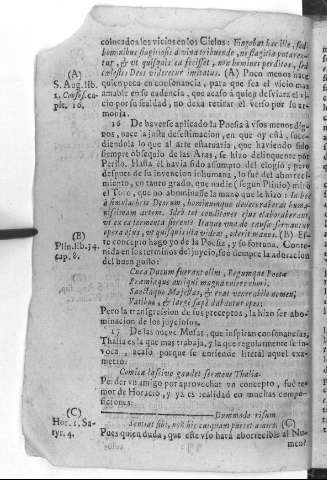 colocados los vicios en los Cielos: Fingebat hæc ille, sed
hominibus flagitiosis divina tribuendo, ne flagitia putaren-
tur, & ut quisquis ea fecisset, non homines perditos, sed
cœlestes Deos videretur imitatus. (A) Poco menos hace
(A)
S. Aug. lib.
1. Confes. ca-
pit. 16.
quien peca en consonancia, para que sea el vicio mas
amable en su cadencia, que acaso à quien desviara el vi-
cio por su fealdad, no dexa retirar el verso por su ar-
monia.
16 De haverse aplicado la Poesia à usos menos dig-
nos, nace la justa desestimacion, en que oy està, suce-
diendola lo que al arte estatuaria, que haviendo sido
siempre obsequio de las Aras, se hizo delinquente por
Perilo. Hasta èl havia sido assumpto del elogio; pero
despues de su invencion inhumana, lo fuè del aborreci-
miento, en tanto grado, que nadie (segun Plinio) mirò
el Toro, que no abominasse la mano que le hizo: In hoc
à simulachris Deorum, hominumque devocaverat huma-
nissimam artem. Ideò tot conditores ejus elaboraverant,
ut ex ea tormenta fierent? Itaque una de causa servantur
opera ejus, ut quisquis illa videat, oderit manus. (B) Es-
(B)
Plin. lib. 34.
cap. 8.
te concepto hago yo de la Poesia, y su fortuna. Conte-
nida en los terminos del juycio, fuè siempre la adoracion
del buen gusto:
Cura Ducum fuerant olim, Regumque Poetæ
Præmiaque antiqui magna tulere chori.
Sanctaque Majestas, & erat venerabile nomen,
Vatibus, & largæ sæpè dabantur opes.
Pero la transgresion de sus preceptos, la hizo ser abo-
minacion de los juyciosos.
17 De las nueve Musas, que inspiran consonancias,
Thalia es la que mas trabaja, y la que regularmente se in-
voca, acaso porque se entiende literal aquel exa-
metro:
Comica lascivo gaudet sermone Thalia.
Perder un amigo por aprovechar un concepto, fuè te-
mor de Horacio, y ya es realidad en muchas compo-
siciones:
Dummodo risum
(C)
Hor. 1. Sa-
tyr. 4.
Excutiat sibi, non hic cuiquam parcet amico. (C)
Pues quien duda, que este uso harà aborrecible al Nu-
men?